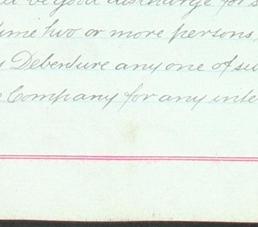 be good discharge for s
time two or more persons,
Debenture any one of su
Company for any inte